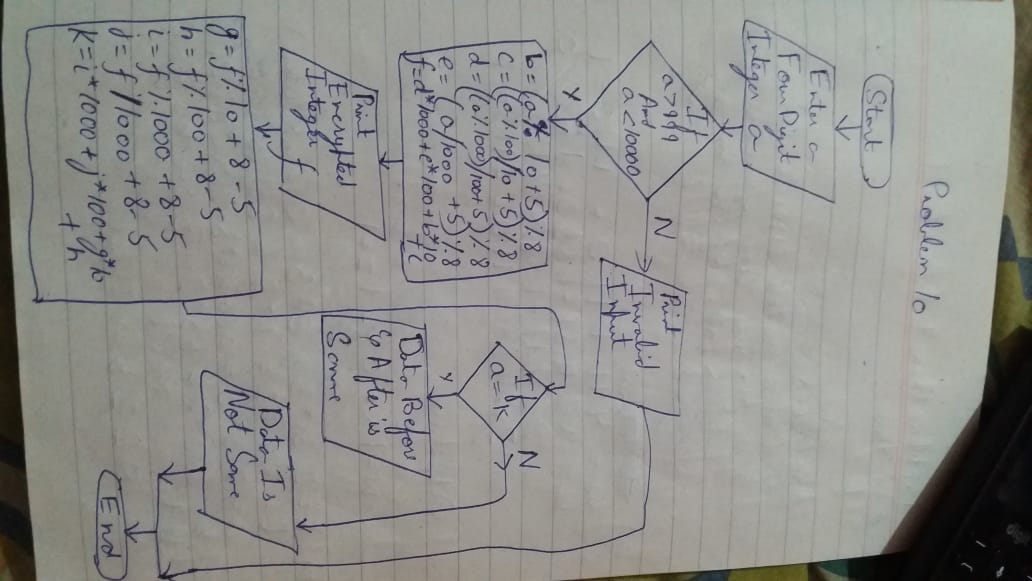 Problem 10
Start
Enter a
Four Digit
Integer a
If
a > 999
And
a < 10000
N
Print
Invalid
Input
Y
b = (a % 10 + 5) % 8
c = ((a % 100)/10 + 5) % 8
d = ((a % 1000)/100 + 5) % 8
e = (a/1000 + 5) % 8
f = d*1000 + e*100 + b*10
+ c
Print
Encrypted
Integer
f
g = f % 10 + 8 - 5
h = f % 100 + 8 - 5
i = f % 1000 + 8 - 5
j = f / 1000 + 8 - 5
k = i*1000 + j*100 + g*10
+ h
If
a = k
N
Y
Data Before
& After is
Same
Data Is
Not Same
End